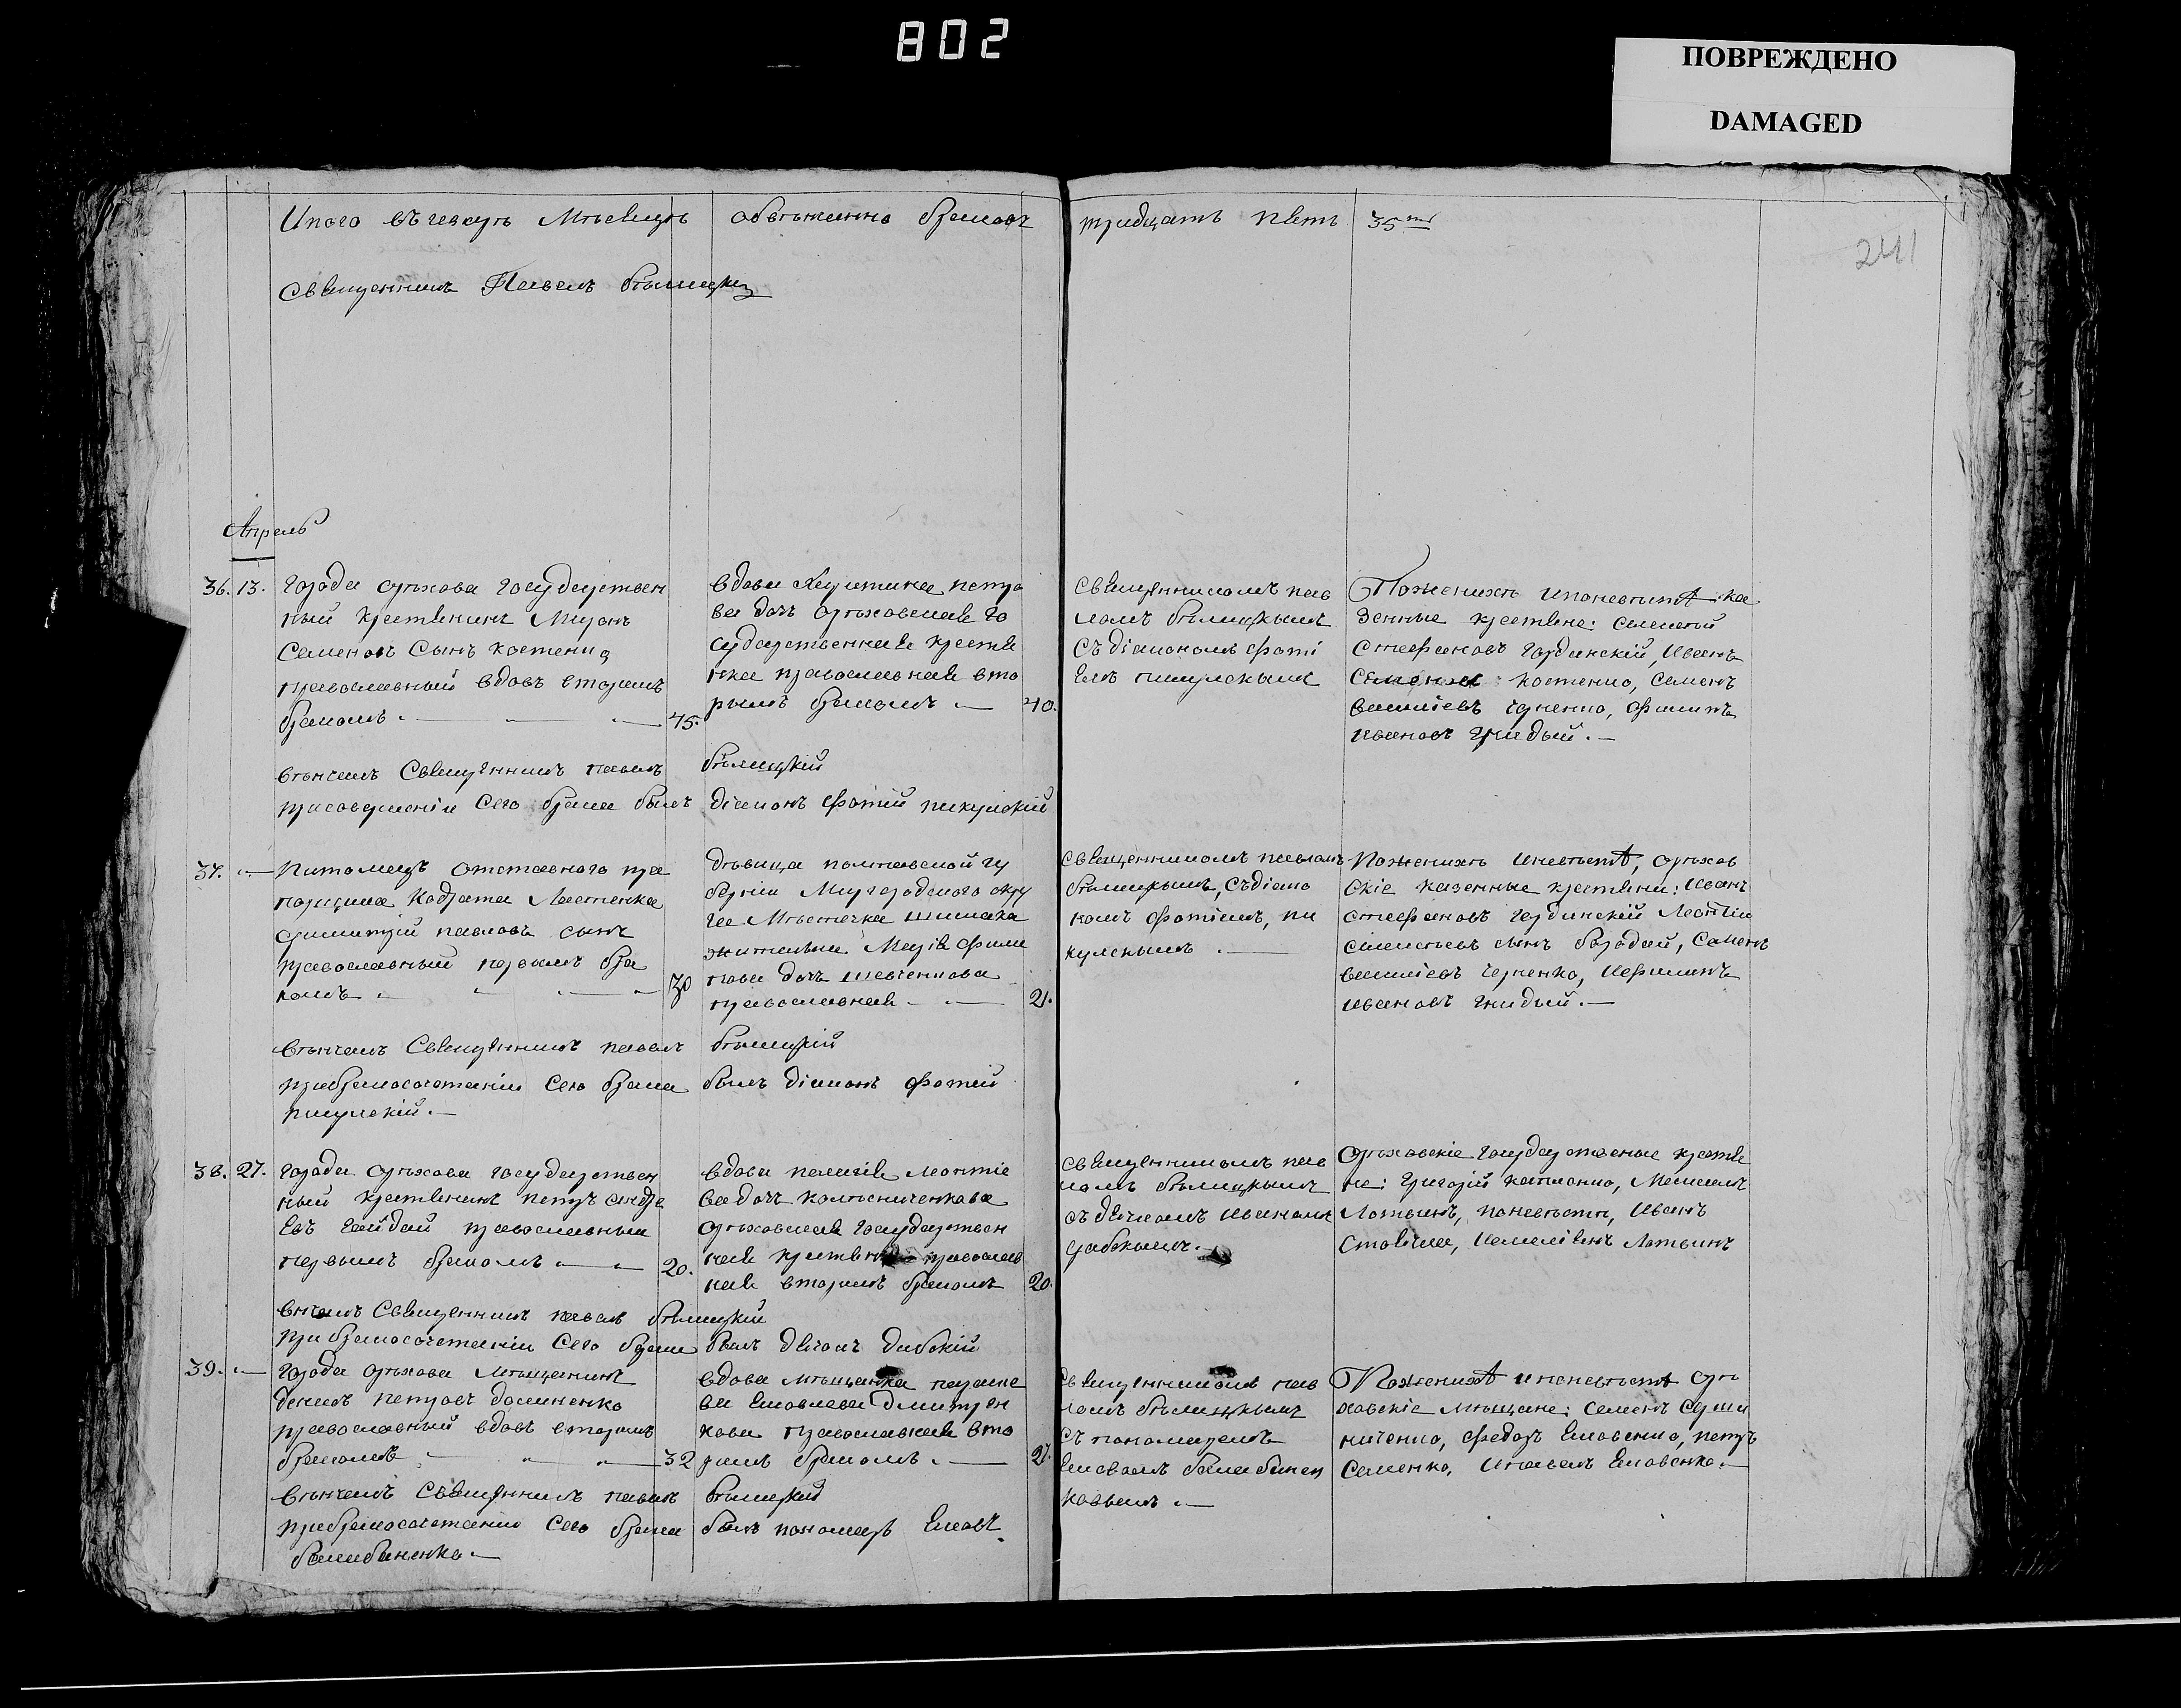 802
ПОВРЕЖДЕНО
DAMAGED
241
Итого въ генварѣ Мѣсяцѣ обвѣнчанно браковъ тридцать пять 35ть
Священникъ Павелъ Бѣлицкій
Апрель
36. 13.
города Орѣхова государствен
ный крестянинъ Миронъ
Семеновъ Сынъ Костенко
православный вдовъ вторымъ
бракомъ 45.
вдова Христина петро
ва дочь Орѣховская го
сударственная крестя
нка православная вто
рымъ бракомъ 40.
Священникомъ пав
ломъ бѣлицкымъ
Съ діакономъ фоті
емъ пикулскымъ
По женихѣ и по невѣстѣ ка
зенные крестяне:
Стефановъ Гординскій, Иванъ
Семеновъ Костенко, Семенъ
василіевъ черненко, филипъ
ивановъ гнидый.
вѣнчалъ Священникъ павелъ бѣлицкій
при совершеніи Сего брака былъ діаконъ Фотій пикулскій
37.
Питомецъ отставного пра
порщика Кодрата Ластенка
Димитрій павловъ сынъ
православный первымъ бра
комъ 30
дѣвица полтавской гу
берніи Миргородского окру
га Мѣстечка шишака
жителька Марія фили
пова дочь шевченкова
православная 21.
Священникомъ павломъ
бѣлицкымъ, Съ діако
номъ фотіемъ, пи
кулскымъ
По женихѣ и невѣстѣ, Орѣхов
скіе казенные крестяни: Иванъ
Стефановъ Гординскій Леонтій
сынъ бородай, Семенъ
василіевъ черненко, и филипъ
ивановъ гнидый.
вѣнчалъ Священникъ павелъ бѣлицкій
при бракосочетаніи Сего брака былъ діаконъ Фотій
пикулскій.
38. 27.
города Орѣхова государствен
ный крестянинъ петръ андре
евъ гайдай православный
первымъ бракомъ 20.
вдова пелагія леонтіе
ва дочь колѣсниченкова
Орѣховская государствен
ная крестянка православ
ная вторымъ бракомъ 20.
Священникомъ пав
ломъ бѣлицкымъ
съ дячкомъ Иваномъ
дабскымъ.
Орѣховскіе государственые крестя
не: Григорій капленко, Михаилъ
Лотвинъ, по невѣстѣ, Иванъ
Лотвинъ
внчалъ Священникъ павелъ бѣлицкій
при бракосочетаніи Сего брака былъ дячокъ дабскій
39.
города Орѣхова Мѣщанинъ
денисъ петровъ долиненко
православный вдовъ вторымъ
бракомъ 32
вдова мѣщанка параске
ва Емовлева Дмитрен
кова православная вто
рымъ бракомъ 27.
Священникомъ пав
ломъ бѣлицкымъ
съ пономаремъ
балабанен
ковымъ
По женихѣ и по невѣстѣ Орѣ
ховскіе мѣщане: Семенъ Суши
ниченко, федоръ петръ
Семенко, и павелъ
вѣнчалъ Священникъ павелъ бѣлицкій
при бракосочетанію Сего брака былъ пономарь
балабаненко